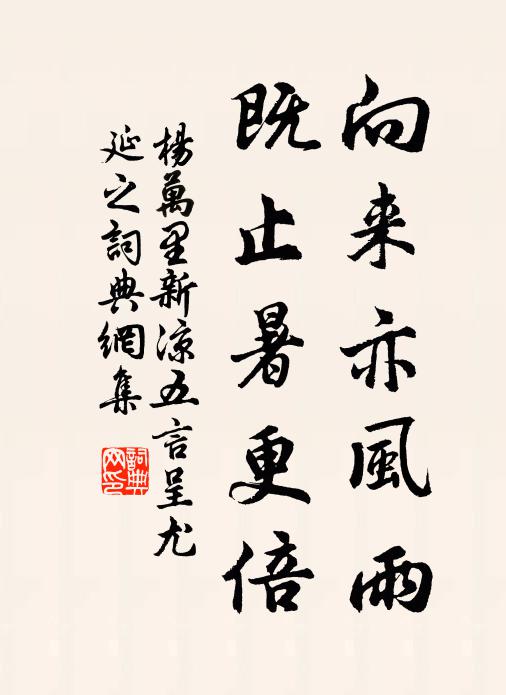 向来亦風雨
既止暑更倍
楊萬里新涼五言呈尤
延之詞典網集
詞典
网印